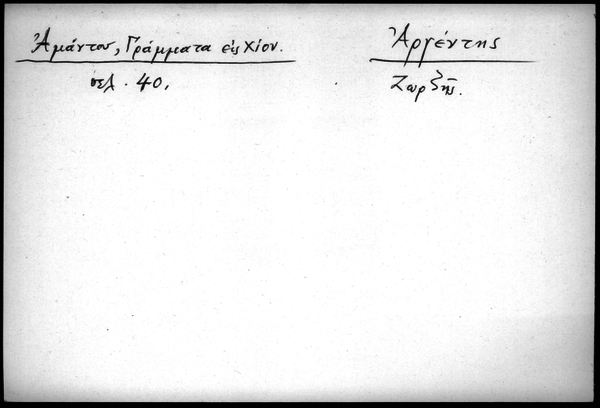 Ἀμάντου, Γράμματα εἰς Χίον.
σελ. 40.
Ἀργέντης
Ζωρζῆς.